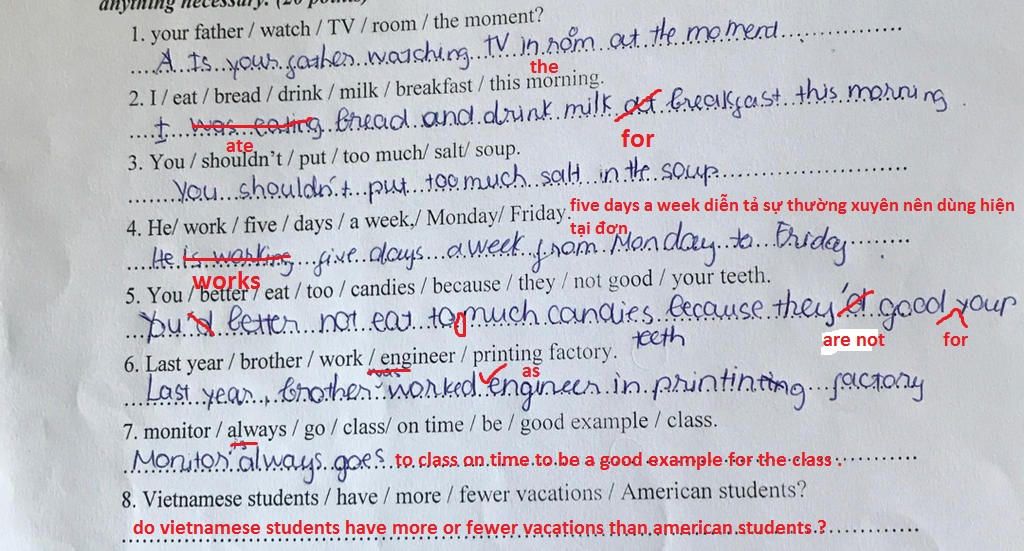 anything necessary. (20 points)
1. your father / watch / TV / room / the moment?
A Is your father watching TV in room at the momend
the
2. I / eat / bread / drink / milk / breakfast / this morning.
I was eating bread and drink milk at breakfast this morning
ate for
3. You / shouldn't / put / too much/ salt/ soup.
You shouldn't put too much salt in the soup
4. He/ work / five / days / a week,/ Monday/ Friday. five days a week diễn tả sự thường xuyên nên dùng hiện
tại đơn
He is working five days a week from Monday to Friday
works
5. You / better / eat / too / candies / because / they / not good / your teeth.
You'd better not eat to much candies because they'd good your
teeth are not for
6. Last year / brother / work / engineer / printing factory.
was as
Last year, brother worked engineer in printinting factory
7. monitor / always / go / class/ on time / be / good example / class.
is
Monitor always goes to class on time to be a good example for the class .
8. Vietnamese students / have / more / fewer vacations / American students?
do vietnamese students have more or fewer vacations than american students ?